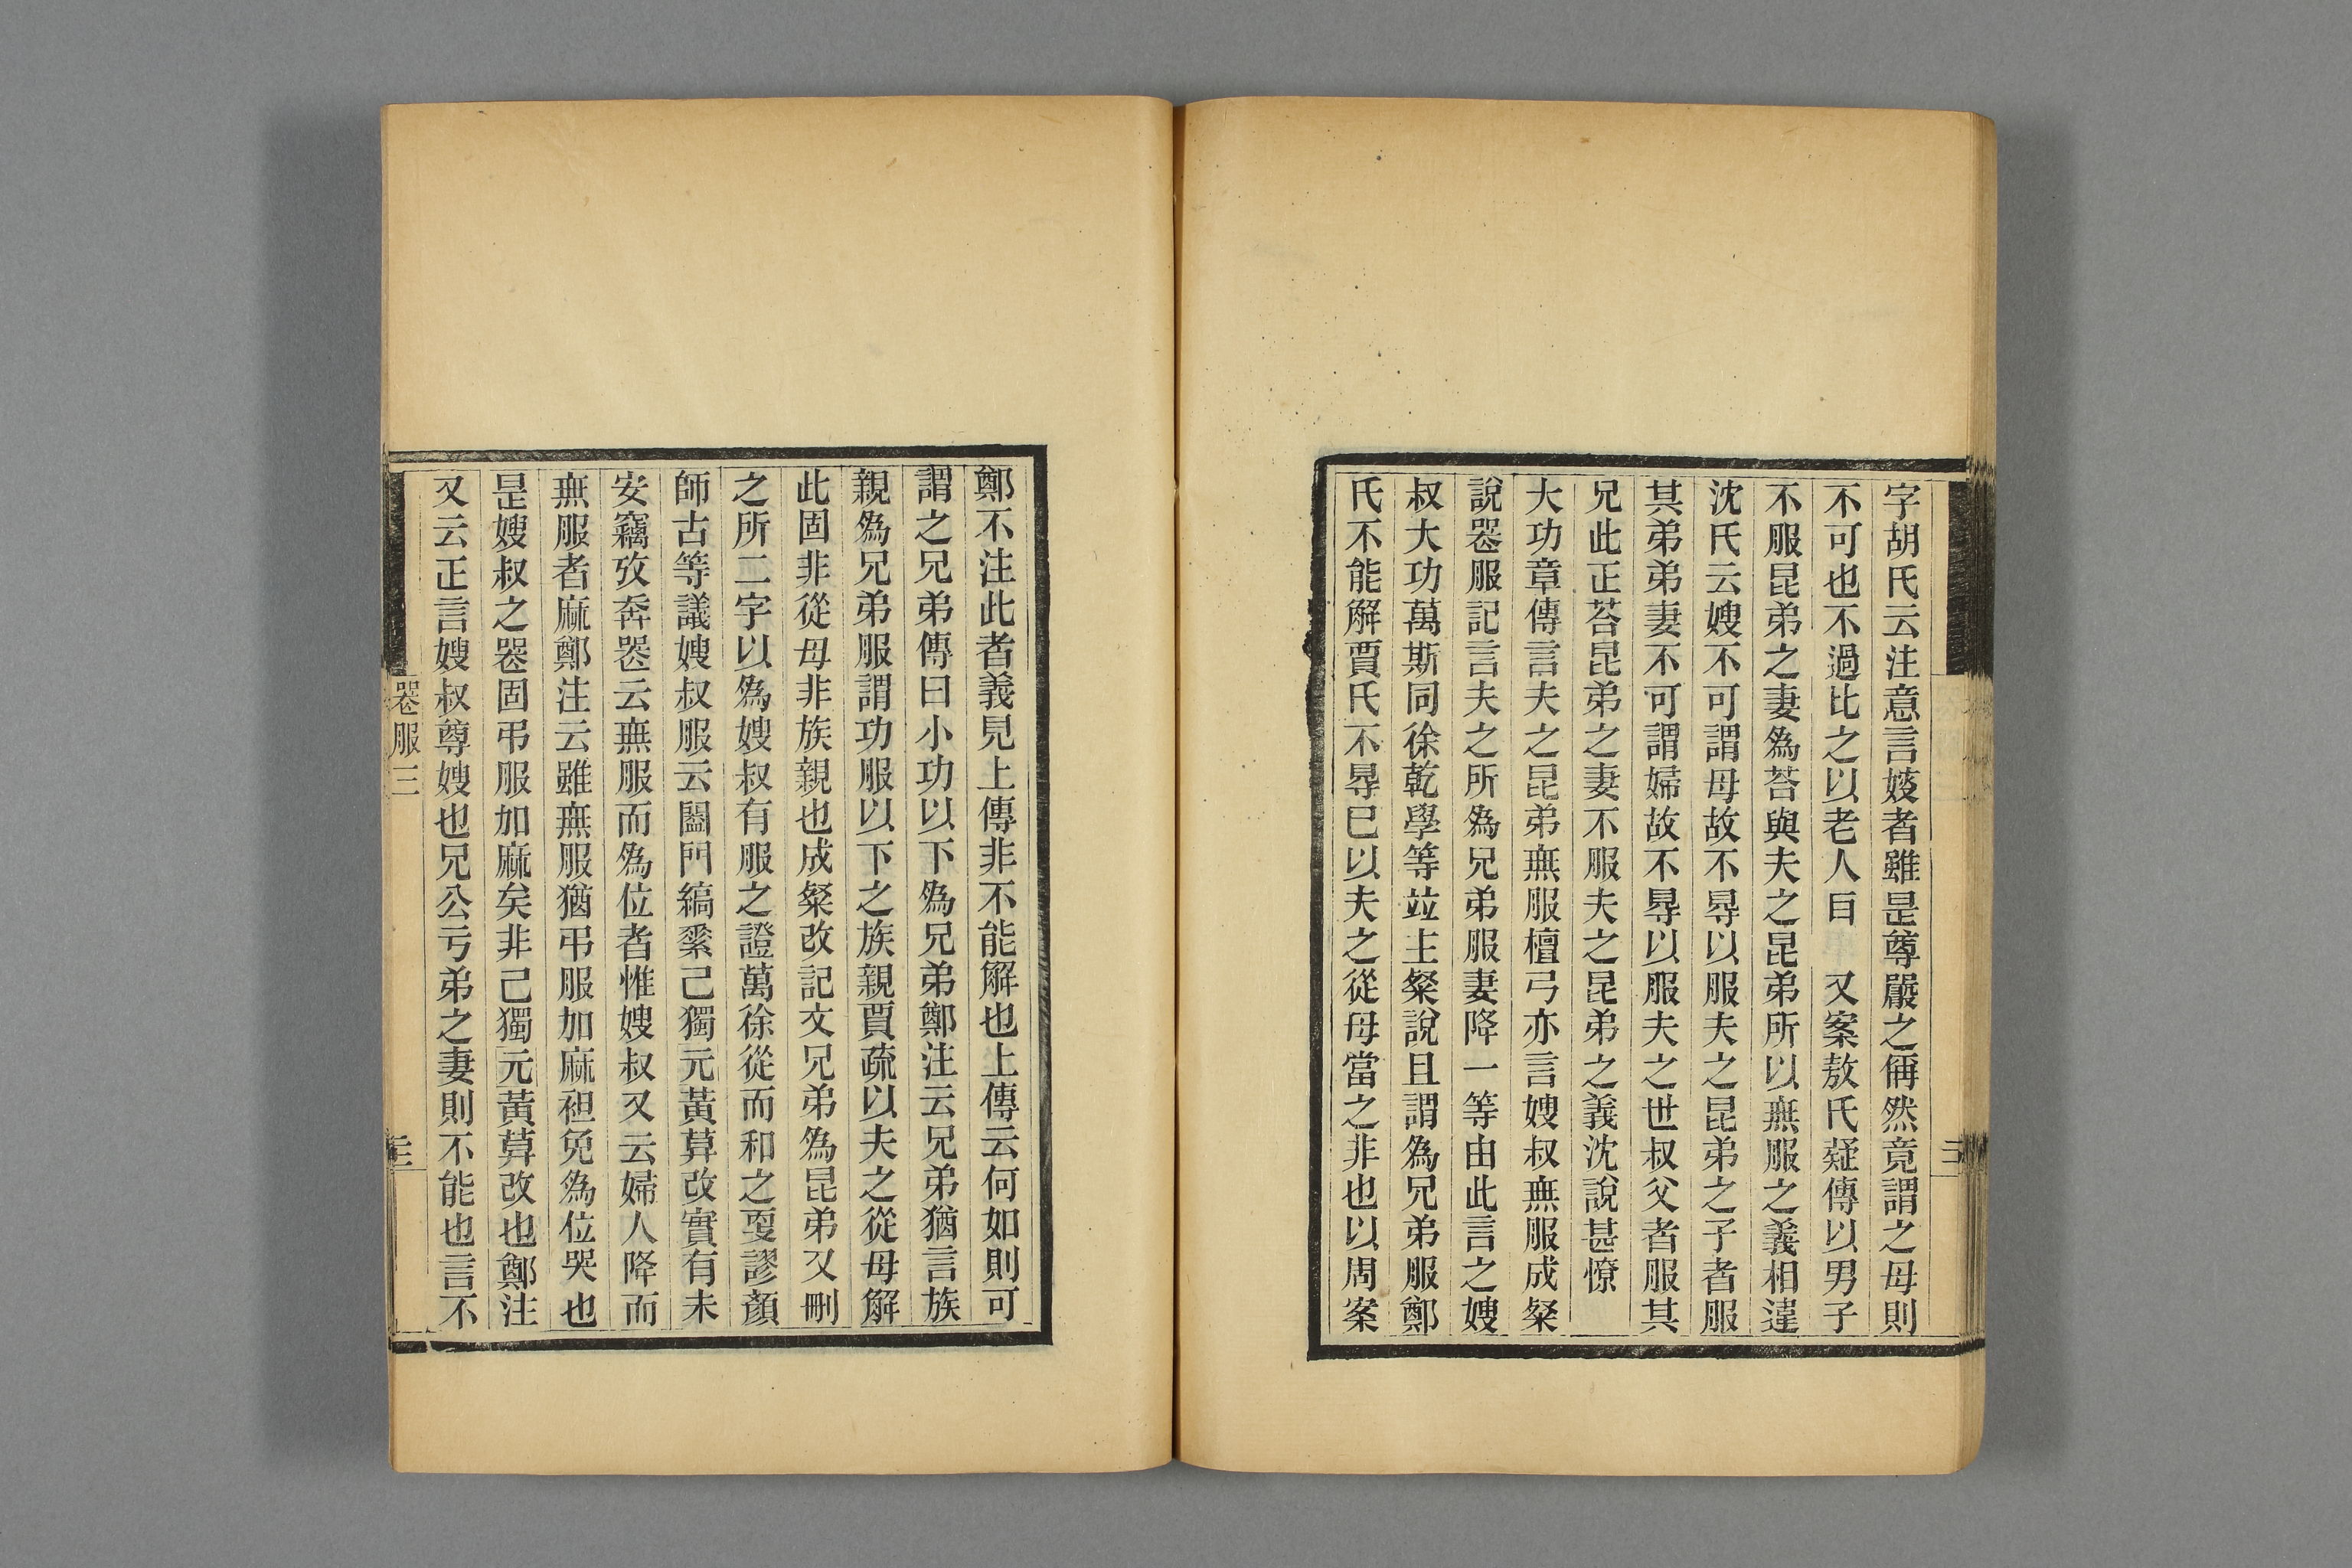 字胡氏云注意言㛐者雖是尊嚴之偁然竟謂之母則
不可也不過比之以老人㠯　又案敖氏疑傳以男子
不服昆弟之妻爲荅與夫之昆弟所以無服之義相違
沈氏云嫂不可謂母故不㝵以服夫之昆弟之子者服
其弟弟妻不可謂婦故不㝵以服夫之世叔父者服其
兄此正荅昆弟之妻不服夫之昆弟之義沈說甚憭
大功章傳言夫之昆弟無服檀弓亦言嫂叔無服成粲
說䘮服記言夫之所爲兄弟服妻降一等由此言之嫂
叔大功萬斯同徐乾學等竝主粲說且謂爲兄弟服鄭
氏不能解賈氏不㝵已以夫之從母當之非也以周案
鄭不注此者義見上傳非不能解也上傳云何如則可
謂之兄弟傳曰小功以下爲兄弟鄭注云兄弟猶言族
親爲兄弟服謂功服以下之族親賈疏以夫之從母解
此固非從母非族親也成粲改記文兄弟爲昆弟又刪
之所二字以爲嫂叔有服之證萬徐從而和之䎡謬顏
師古等議嫂叔服云闔門縞素己獨元黃䔇改實有未
安竊攷奔䘮云無服而爲位者惟嫂叔又云婦人降而
無服者麻鄭注云雖無服猶弔服加麻袒免爲位哭也
是嫂叔之䘮固弔服加麻矣非己獨元黃䔇改也鄭注
又云正言嫂叔尊嫂也兄公亏弟之妻則不能也言不
䘮服三